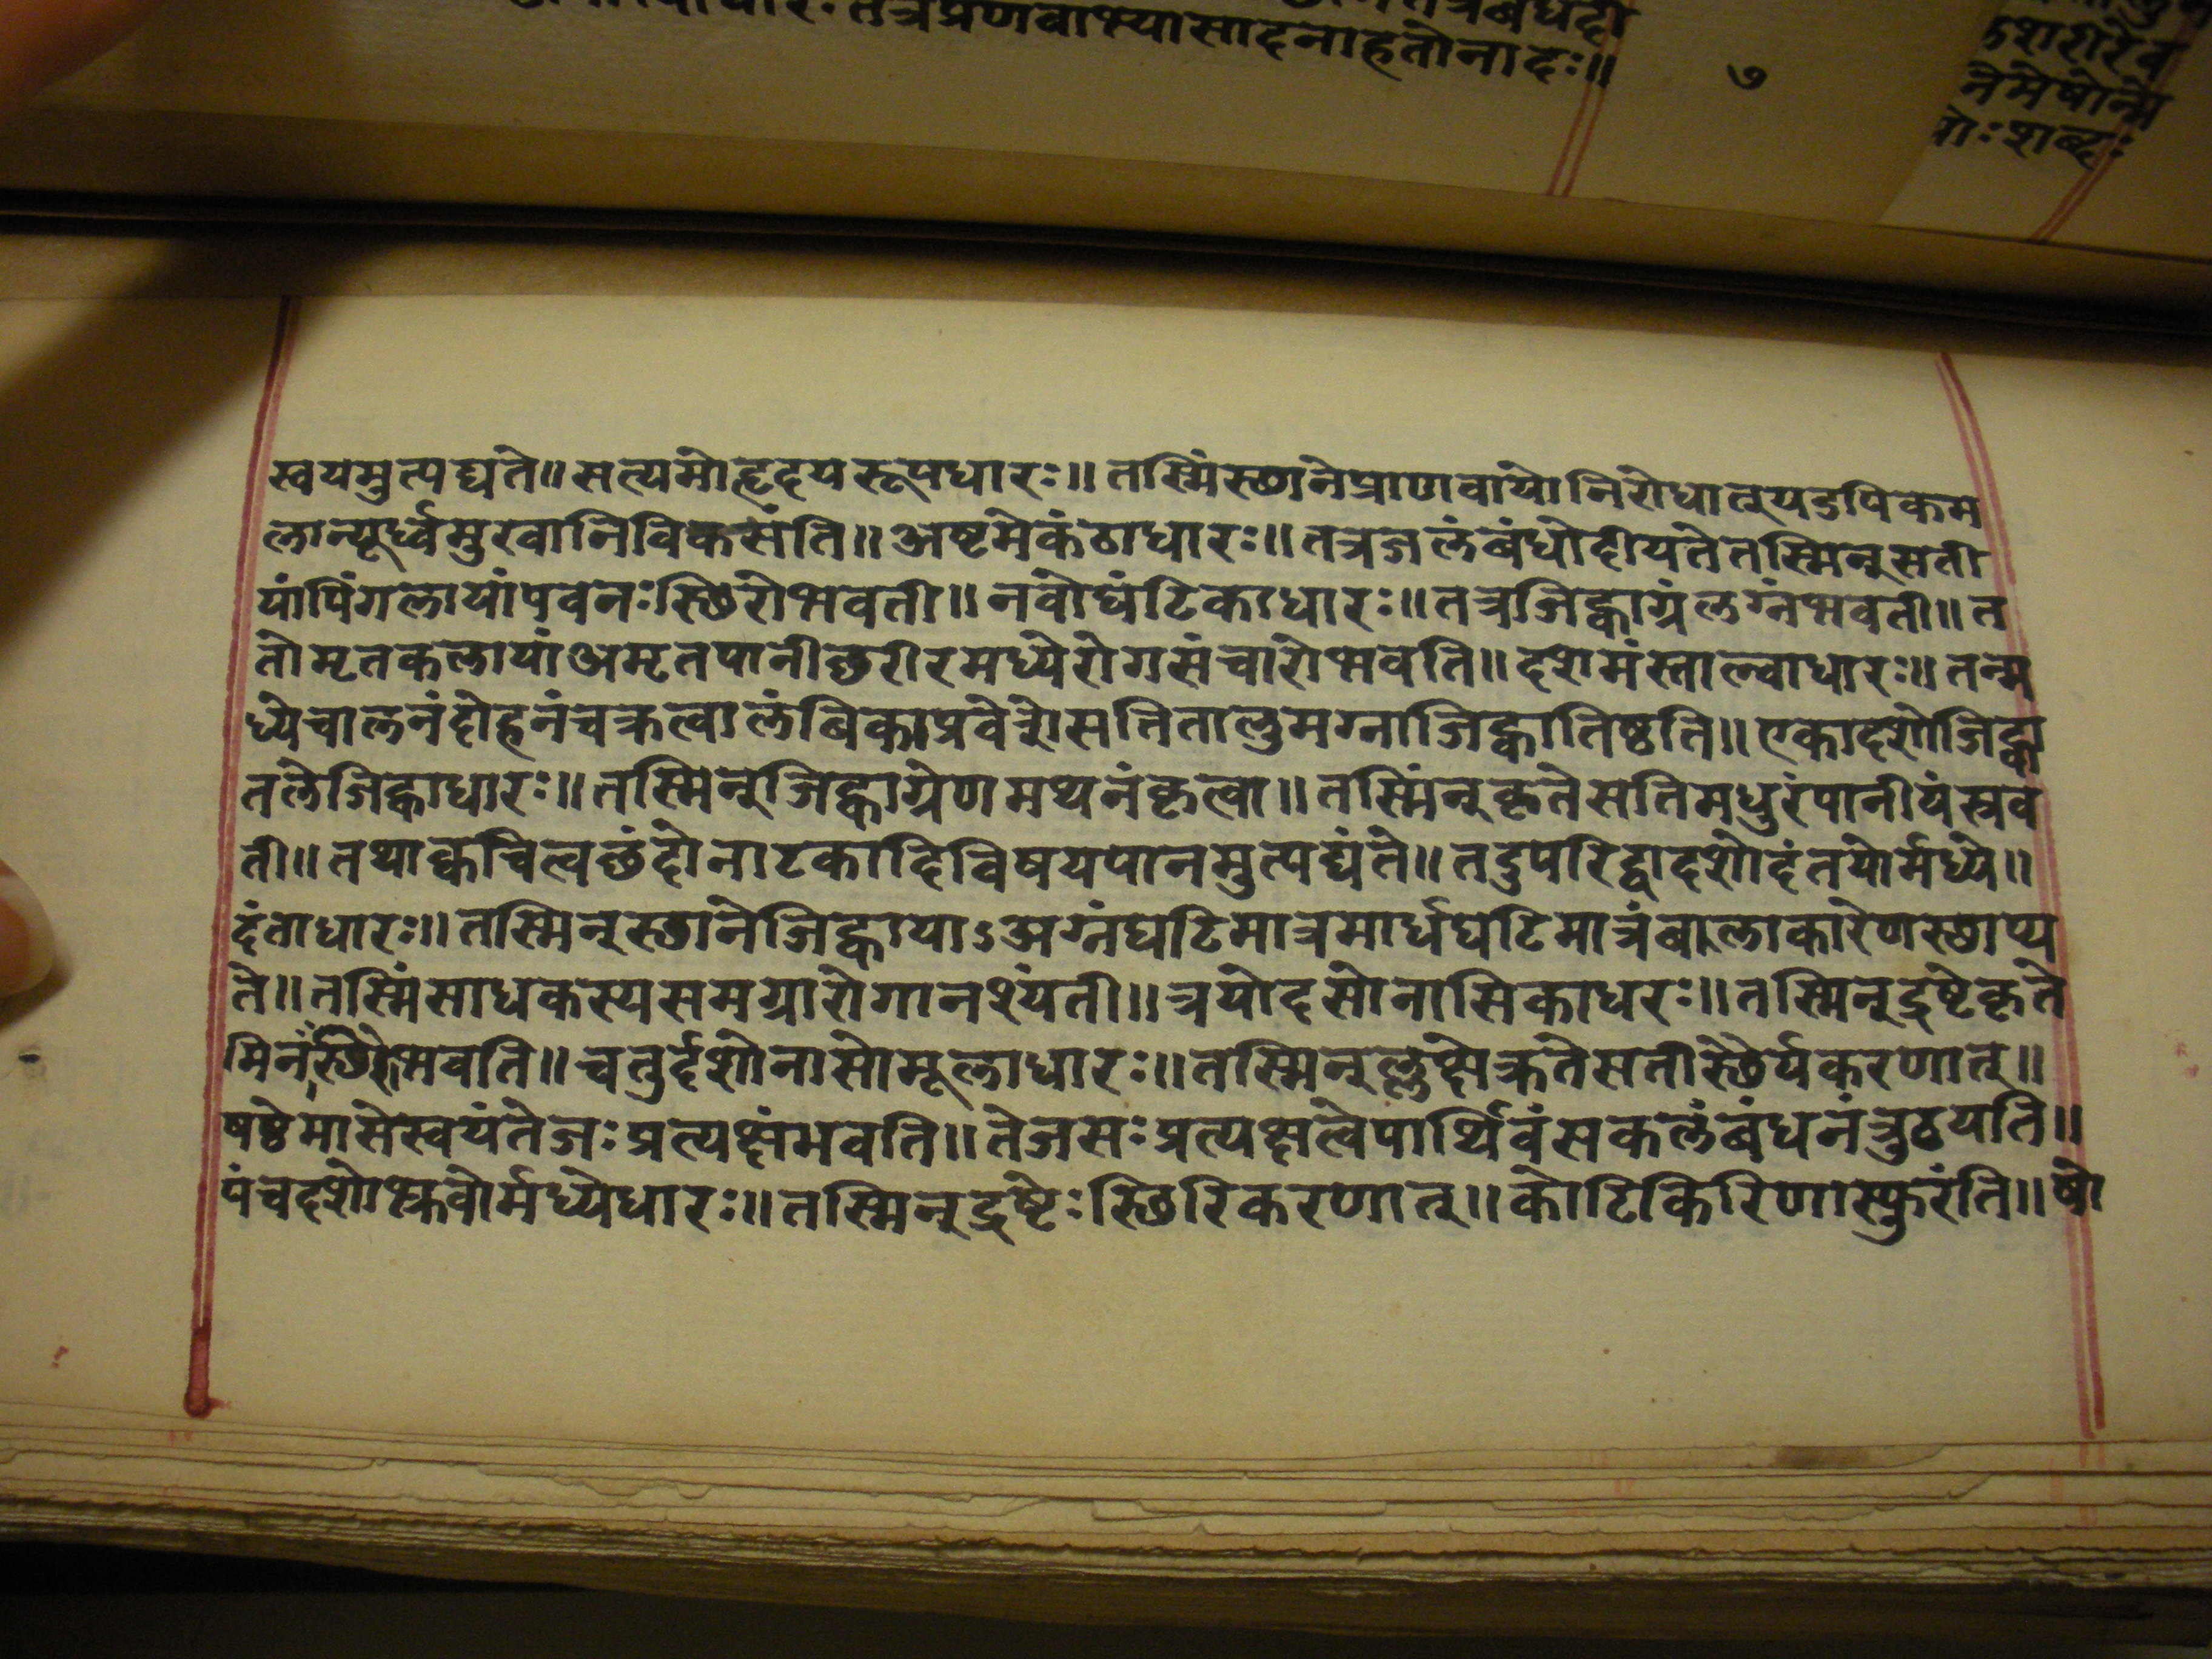 तत्रप्रणवाभ्यासादनाहतोनादः॥
७
ऽशरीरेव
नेमेषोन्मे
शब्दः
स्वयमुत्पद्यते॥सत्यमोहृदयरूपधारः॥तस्मिंस्थानेप्राणवायोनिरोधात्षडपिकम
लान्यूर्ध्वमुखानिविकसंति॥अष्टमेकंठाधारः॥तत्रजलंबंधोदीयतेतस्मिन्सती
यांपिंगलायांपवनःस्थिरोभवती॥नवोघंटिकाधारः॥तत्रजिह्वाग्रंलग्नंभवती॥त
तोमृतकलायांअमृतपानीछरीरमध्येरोगसंचारोभवति॥दशमंस्ताल्वाधारः॥तन्म
ध्येचालनंदोहनंचक्रत्वालंबिकाप्रवेशेसतितालुमग्नाजिह्वातिष्ठति॥एकादशोजिह्वा
तलेजिह्वाधारः॥तस्मिन्जिह्वाग्रेणमथनंकृत्वा॥तस्मिंन्कृतेसतिमधुरंपानीयंस्रव
ती॥तथाक्वचित्वछंदोनाटकादिविषयपानमुत्पद्यंते॥तदुपरिद्वादशोदंतयोर्मध्ये॥
दंताधारः॥तस्मिन्स्थानेजिह्वायाऽअग्नंघटिमात्रमार्धघटिमात्रंबालाकारेणस्थाप्य
ते॥तस्मिंसाधकस्यसमग्रारोगानश्यंती॥त्रयोदसोनासिकाधरः॥तस्मिन्द्रष्टेकृते
भवति॥चतुर्दशोनासोमूलाधारः॥तस्मिन्क्रतेसतीस्थैर्यकरणात्॥
षष्ठेमासेस्वयंतेजःप्रत्यक्षंभवति॥तेजसःप्रत्यक्षत्वेपार्थिवंसकलंबंधनंत्रुठयति॥
पंचदशोभ्रुवोर्मध्येधारः॥तस्मिन्द्रष्टेःस्थिरिकरणात्॥कोटिकिरिणास्फुरंति॥षो